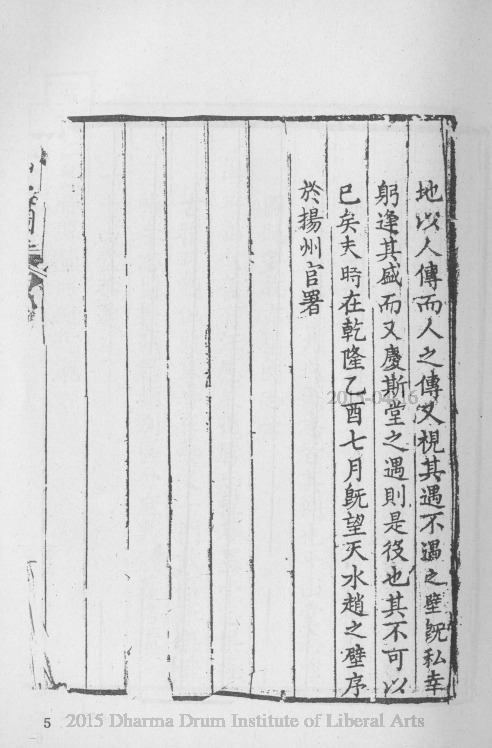 地以人傳而人之傳又視其遇不遇之壁既私幸
躬逢其盛而又慶斯堂之遇則是役也其不可以
已矣夫時在乾隆乙酉七月既望天水趙之壁序
於揚州官署
5 2015 Dharma Drum Institute of Liberal Arts